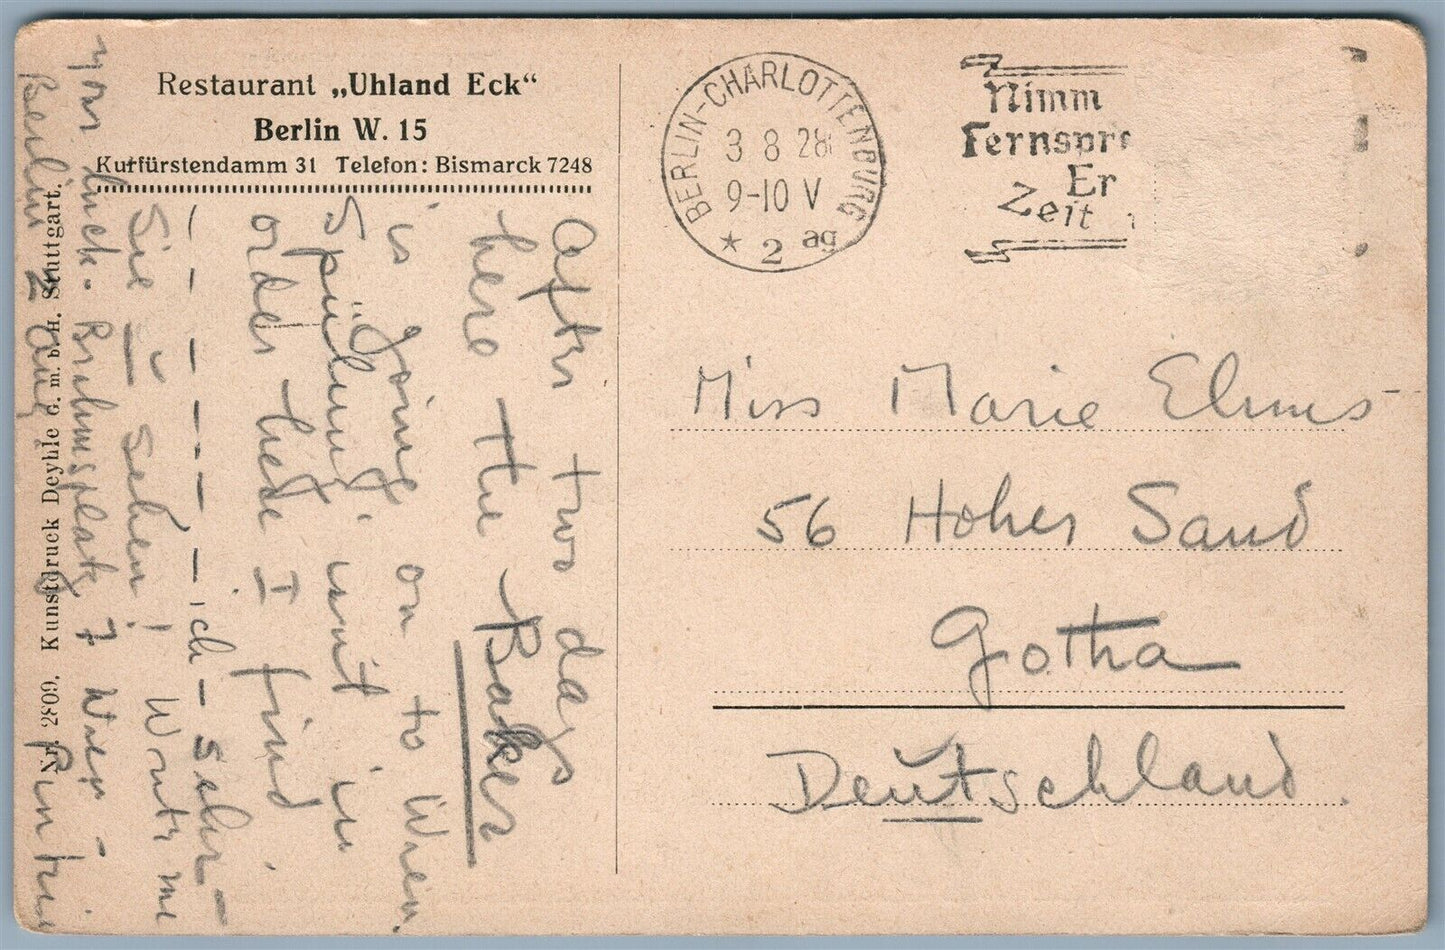 Restaurant „Uhland Eck“
Berlin W. 15
Kurfürstendamm 31 Telefon: Bismarck 7248
After two days
here the Baker
is going on to Wien.
Spülung ist in
order hede I find
ich – sehr –
Sie sehen! Write me
your luck. Brahmsplatz 7 Wien –
Berlin 2 Aug
Nr. 2809. Kunstdruck Deyhle G. m. b. H. Stuttgart.
BERLIN-CHARLOTTENBURG
3 8 28
9-10 V
* 2 ag
Nimm
Fernspre
Er
Zeit
Miss Marie Elmes
56 Hoher Sand
Gotha
Deutschland.